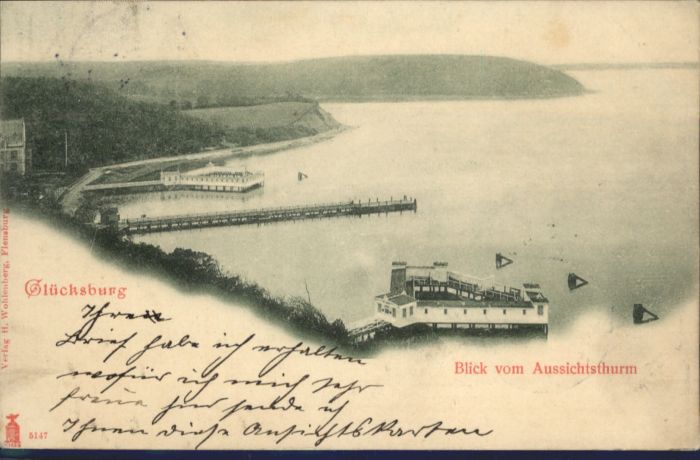 Glücksburg
Blick vom Aussichtsthurm
Ihren
Brief habe ich erhalten
wofür ich mich sehr
freue hir sende ich
Ihnen diese Ansichtskarten
Verlag H. Wohlenberg, Flensburg
5147